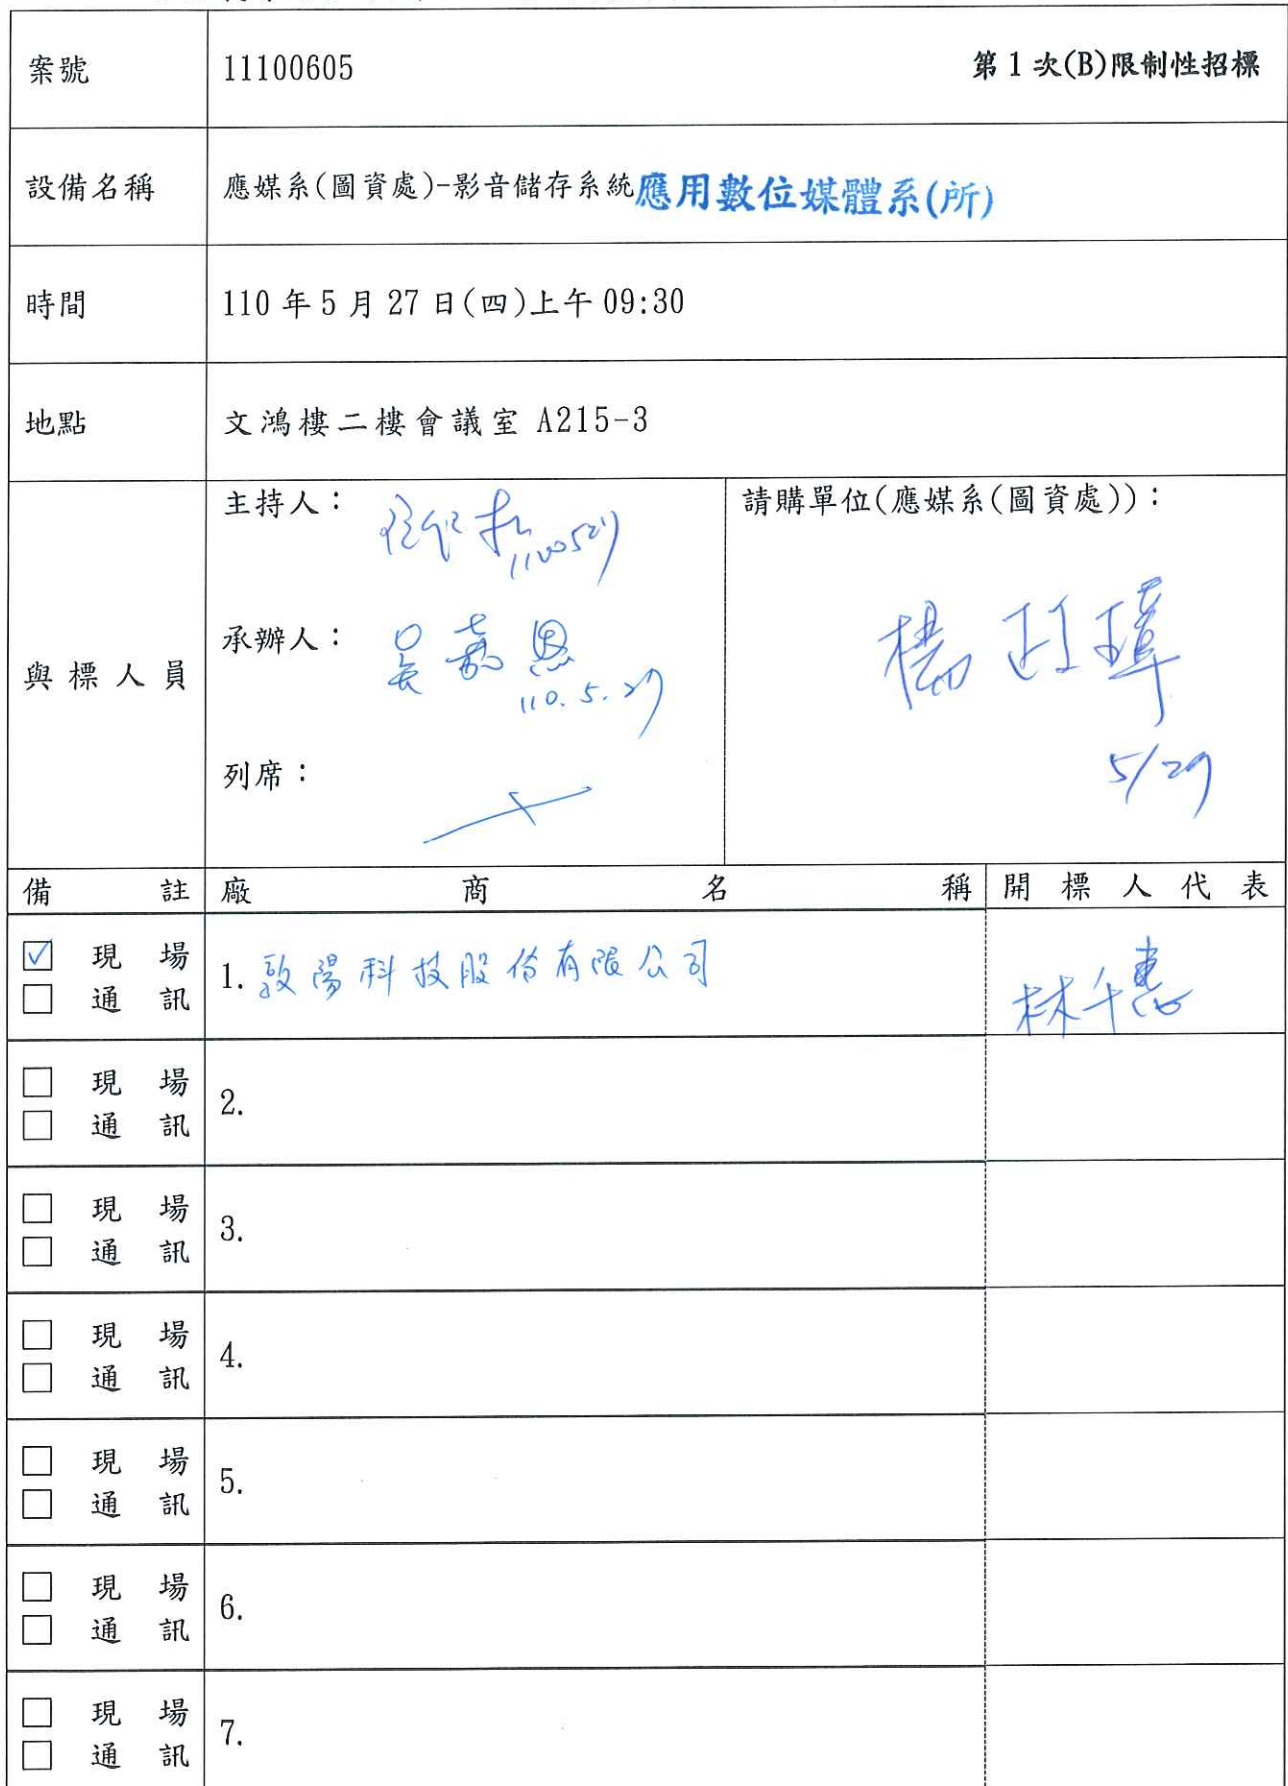 案號 11100605 第1次(B)限制性招標
設備名稱 應媒系(圖資處)-影音儲存系統應用數位媒體系(所)
時間 110年5月27日(四)上午09:30
地點 文鴻樓二樓會議室 A215-3
與標人員
主持人: 1100527
承辦人: 吳嘉恩 110.5.27
列席:
請購單位(應媒系(圖資處)):
楊政璋
5/27
備註 廠商名稱 開標人代表
☑ 現場
□ 通訊
1. 敦陽科技股份有限公司 林千惠
□ 現場
□ 通訊
2.
□ 現場
□ 通訊
3.
□ 現場
□ 通訊
4.
□ 現場
□ 通訊
5.
□ 現場
□ 通訊
6.
□ 現場
□ 通訊
7.